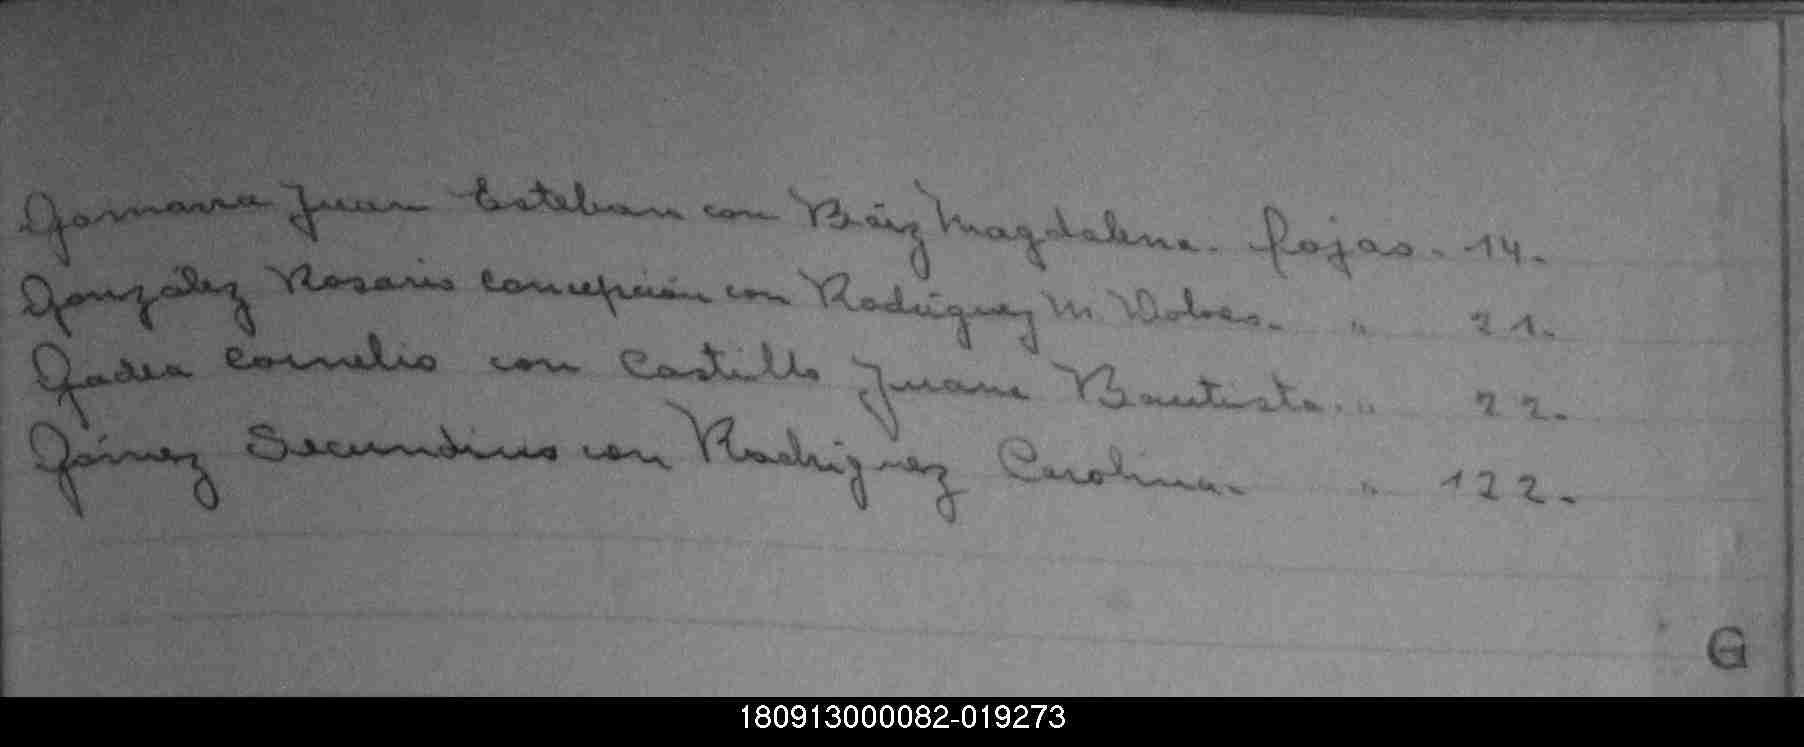 Gamarra Juan Esteban con Báez Magdalena. fojas. 14.
González Rosario Concepción con Rodríguez M. Dolores. " 21.
Gadea Cornelio con Castillo Juana Bautista. " 22.
Gómez Secundino con Rodríguez Carolina. " 122.
G
180913000082-019273